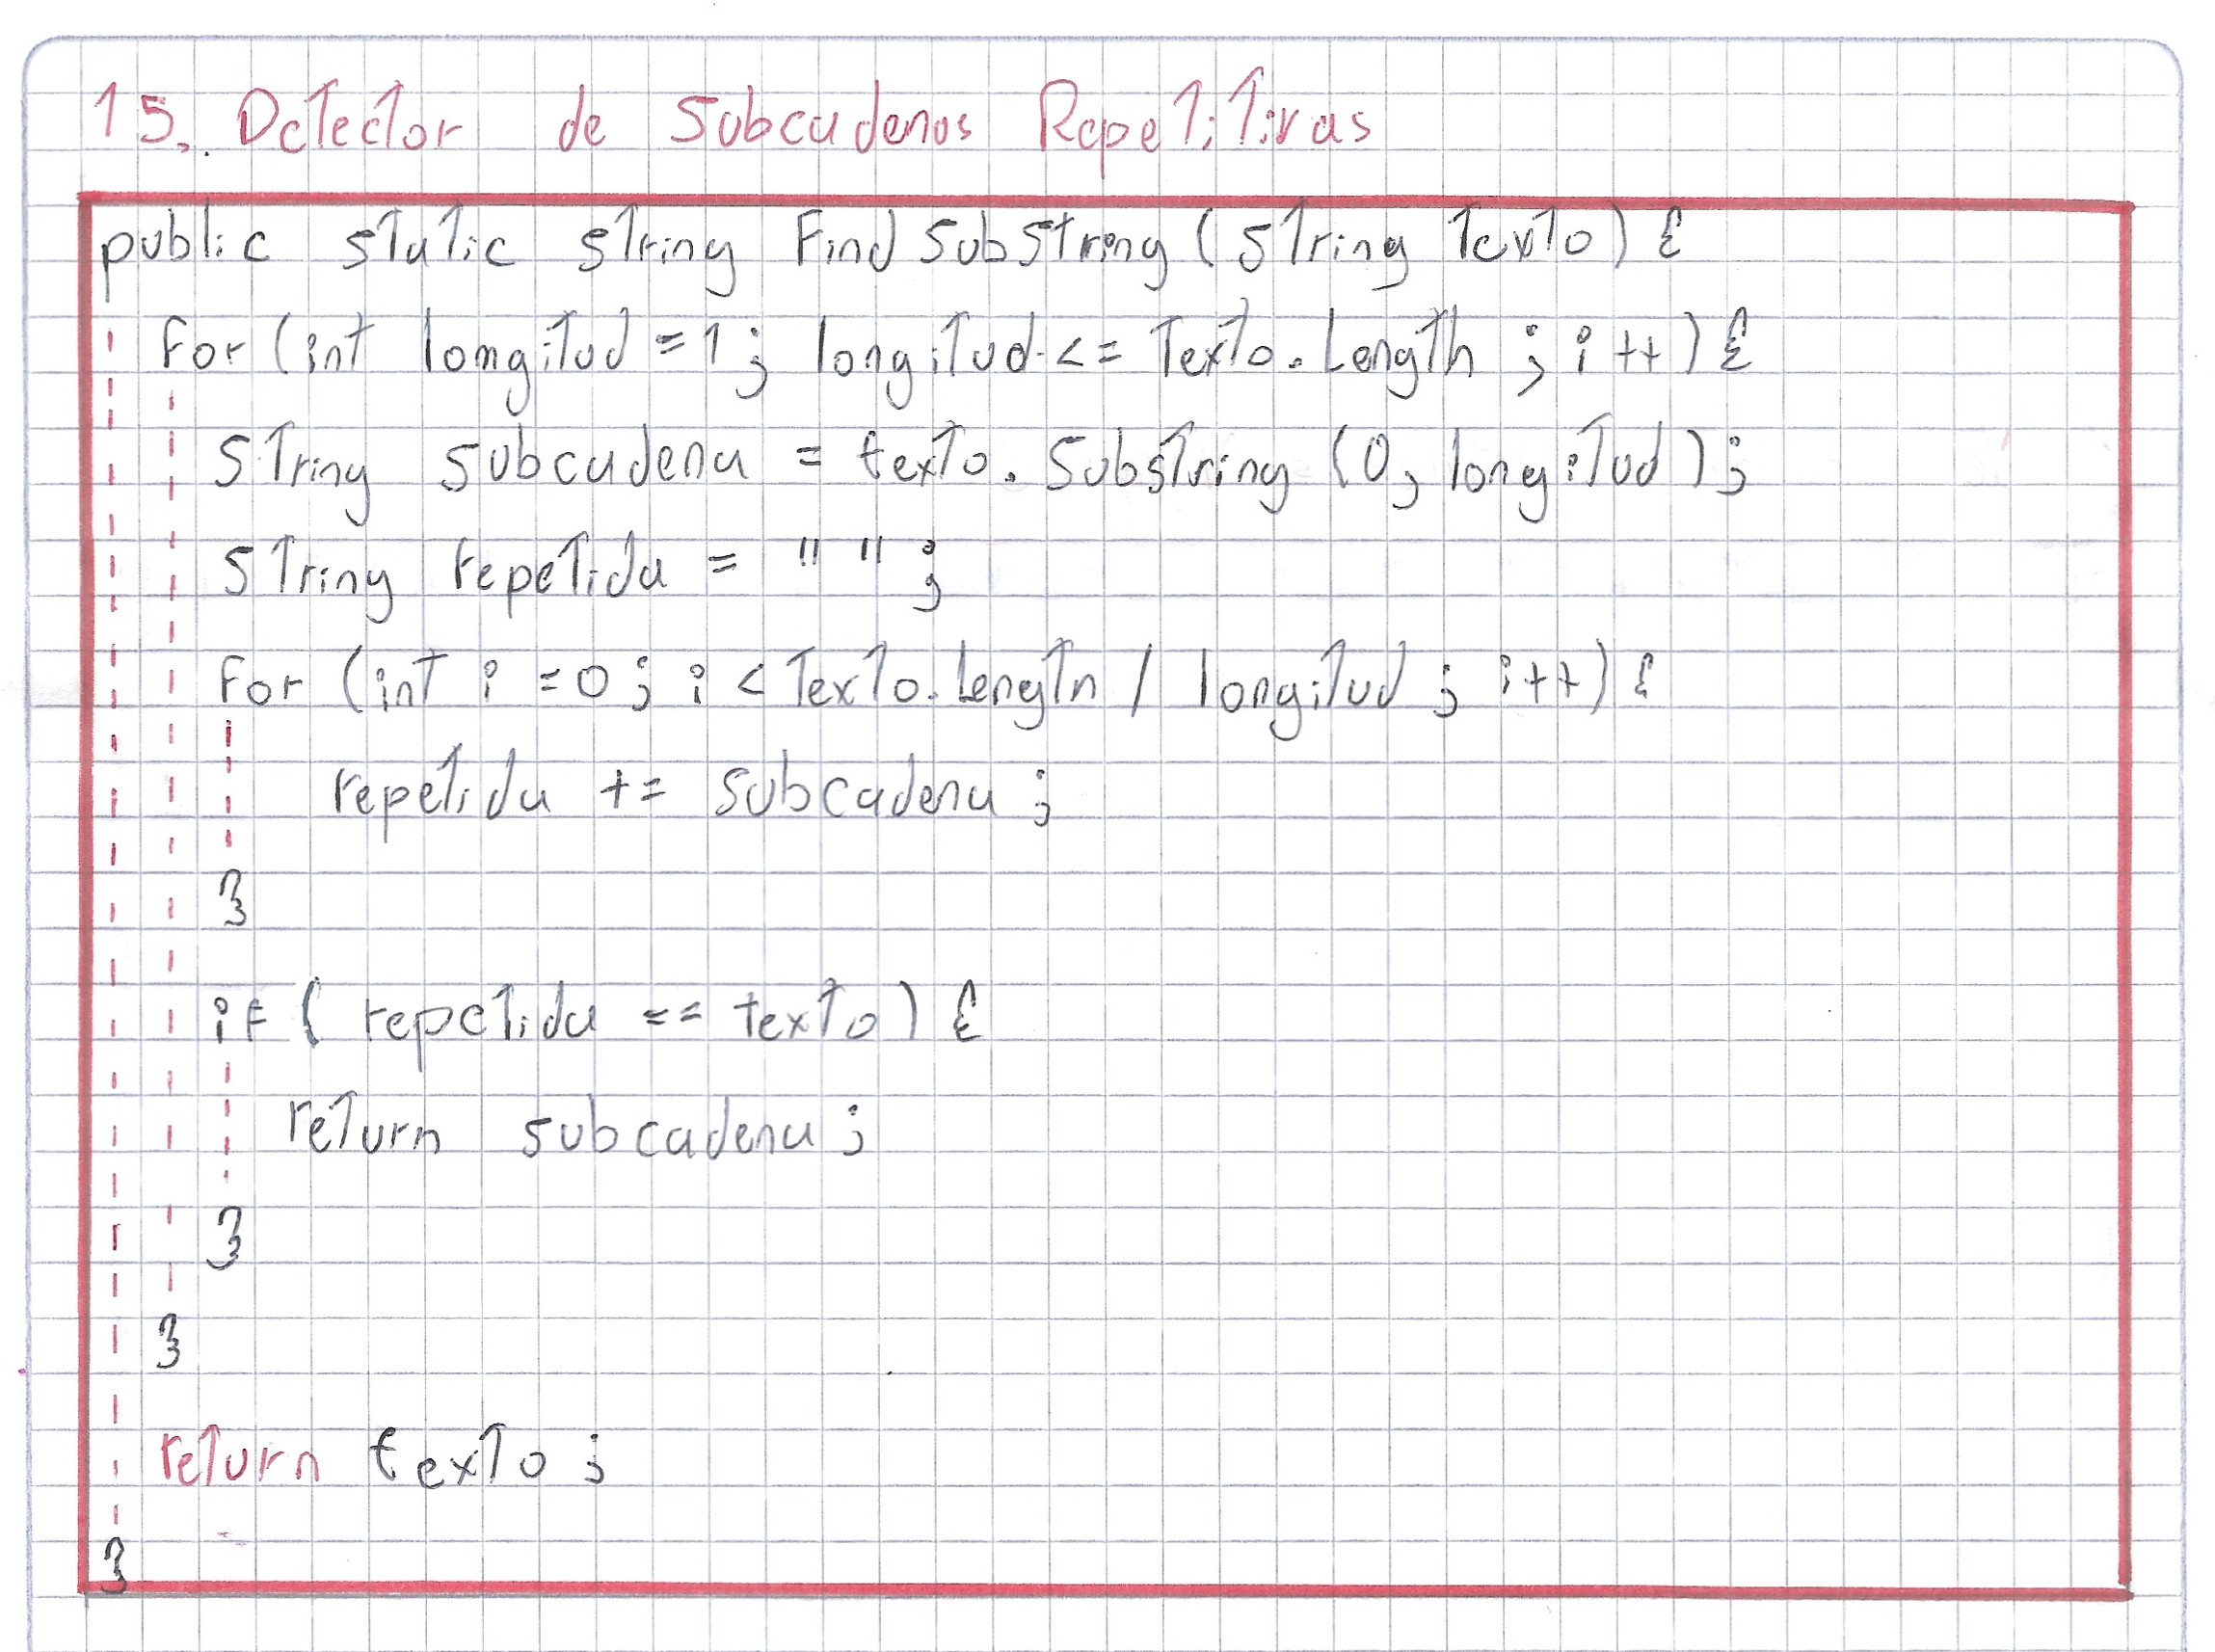 15. Detector de Subcadenas Repetitivas
public static string FindSubstring (string Texto) {
for (int longitud = 1; longitud <= Texto.Length ; i++) {
String subcadena = texto.Substring (0, longitud);
String repetida = " ";
for (int i = 0; i < Texto.Length / longitud; i++) {
repetida += subcadena;
}
if ( repetida == texto) {
return subcadena;
}
}
return texto;
}